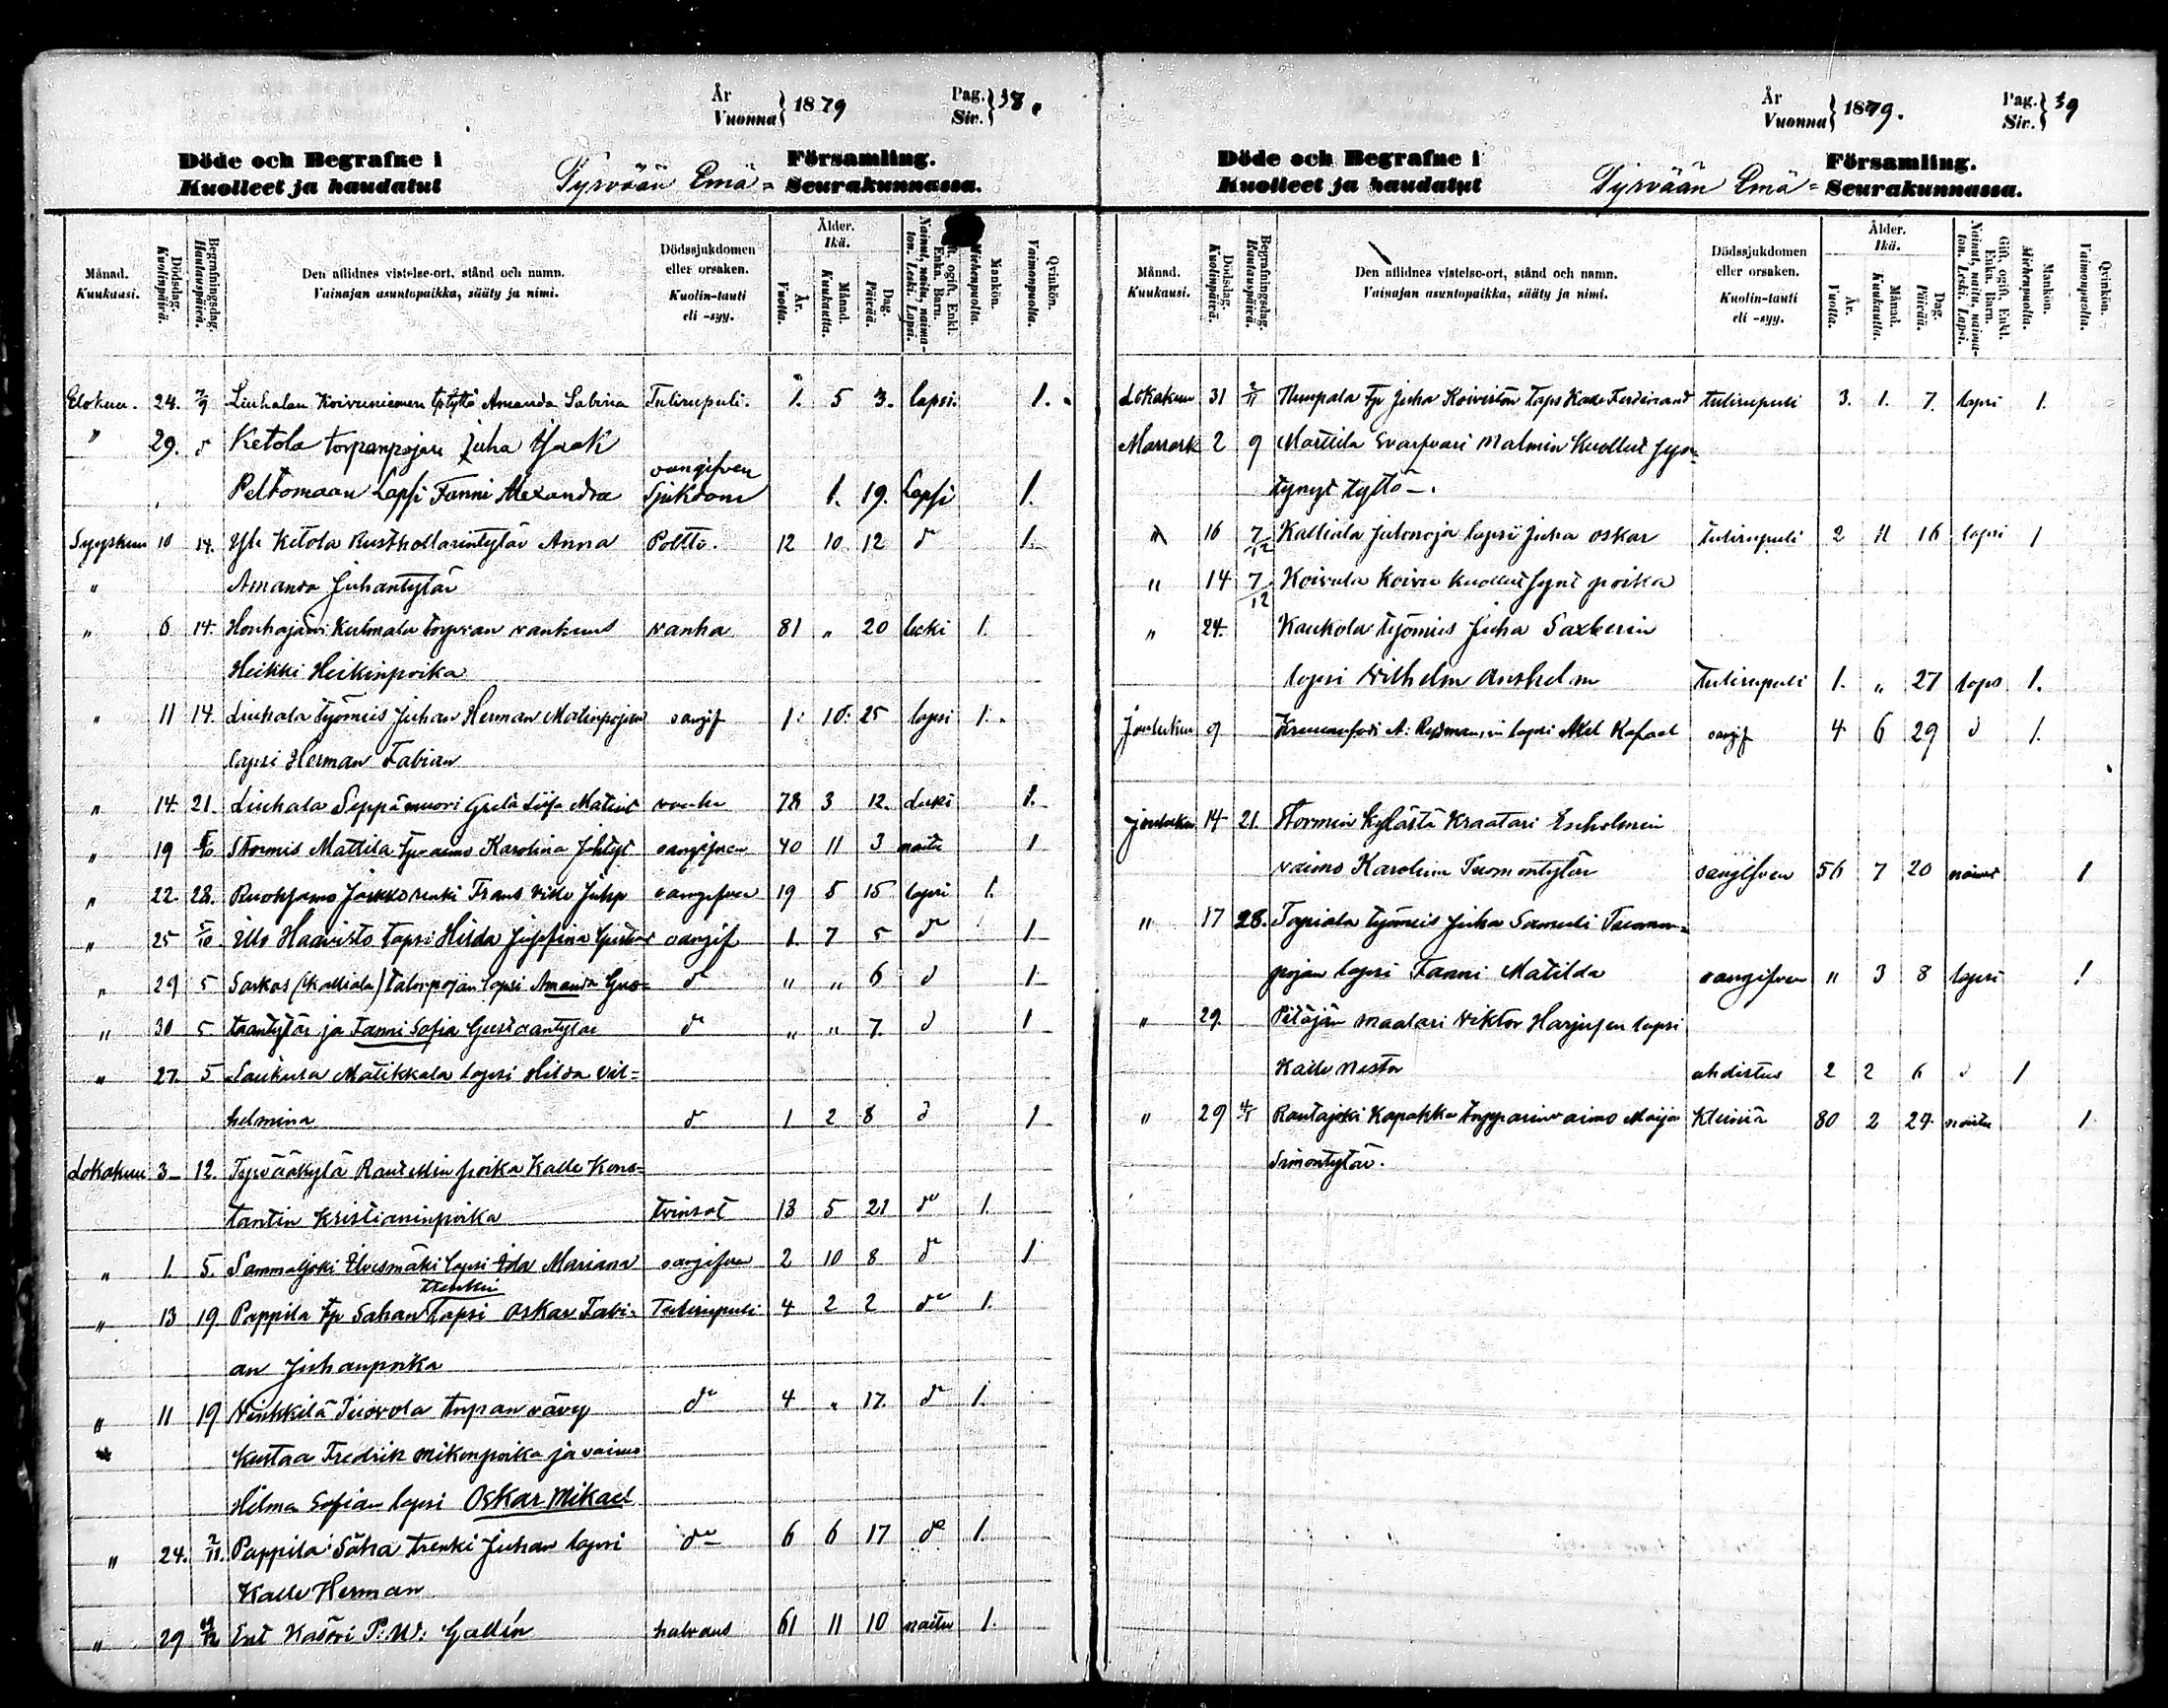 År
Vuonna } 1879
Pag.
Sir. } 38.
Döde och Begrafne i
Kuolleet ja haudatut
Tyrvään Emä=
Församling.
Seurakunnassa.
Månad.
Kuukausi.
Dödsdag.
Kuolinpäivä.
Begrafningsdag.
Hautauspäivä.
Den aflidnes vistelse-ort, stånd och namn.
Vainajan asuntopaikka, sääty ja nimi.
Dödssjukdomen
eller orsaken.
Kuolin-tauti
eli -syy.
Ålder.
Ikä.
År.
Vuotta.
Månad.
Kuukautta.
Dag.
Päivää.
ogift, Enkl.
Enka. Barn.
Nainut, naitu, naima-
ton. Leski. Lapsi.
Mankön.
Miehenpuolta.
Qvinkön.
Vaimonpuolta.
Elokuu. 24. 7/9 Liuhalan Koivuniemen tyttö Amanda Sabina Tulirupuli. 1. 5 3. lapsi. 1.
" 29. d Ketola torpanpojan Juha Isaak
Peltomaan Lapsi Fanni Alexandra oangifven Sjukdom 1. 19. Lapsi 1.
Syyskuu 10 14. Yli Ketola Rusthollarintytär Anna Poltto. 12 10 12 d 1.
" Amanda Juhantytär
" 6 14. Houhajärvi Kulmala torpan vanhus vanha 81 " 20 leski 1.
Heikki Heikinpoika
" 11 14. Liuhala työmies Juhan Herman Matinpojan oangif 1. 10. 25 lapsi 1.
lapsi Herman Fabian
" 14. 21. Liuhala Seppämuori Greta Liisa Matint vanha 78 3 12. Leski 1.
" 19 5/10 Stormis Mattila tpvaimo Karolina oangifven 40 11 3 naitu 1
" 22. 28. Ruokjamo Jaakko renki Frans oangifven 19 5 15 lapsi 1.
" 25 5/10 Illo Haavisto lapsi Hilda Josefina oangif 1. 7 5 do 1
" 29 5 (Kalliala) Talonpojan lapsi Amanda Gus= do " " 6 d 1
" 30 5 taantytär ja Fanni Sofia Gustaantytär do " " 7. d 1
" 27. 5 Laukula Matikkala lapsi Hilda Vil=
helmina do 1 2 8 d 1
Lokakuu 3– 12. Tyrväänkylä Rautellin poika Kalle Kons=
tantin Kristianinpoika 13 5 21 do 1.
" 1. 5. Sammaljoki Ilvesmäki lapsi Ida Mariana oangifven 2 10 8 do 1
trenkin
" 13 19 Pappila tp Sahan lapsi Oskar Fabi= Tulirupuli 4 2 2 do 1.
an Juhanpoika
" 11 19 Vinkkilä Tuovola torpan vävy do 4 " 17. do 1.
Kustaa Fredrik Mikonpoika ja vaimo
Hilma Sofian lapsi Oskar Mikael
" 24. 2/11. Pappila Saha trenki Juhan lapsi do 6 6 17 do 1.
Kalle Herman
" 29 Ent P. W. Gallén halvaus 61 11 10 naitu 1.
År
Vuonna } 1879.
Pag.
Sir. } 39
Döde och Begrafne i
Kuolleet ja haudatut
Tyrvään Emä=
Församling.
Seurakunnassa.
Månad.
Kuukausi.
Dödsdag.
Kuolinpäivä.
Begrafningsdag.
Hautauspäivä.
Den aflidnes vistelse-ort, stånd och namn.
Vainajan asuntopaikka, sääty ja nimi.
Dödssjukdomen
eller orsaken.
Kuolin-tauti
eli -syy.
Ålder.
Ikä.
År.
Vuotta.
Månad.
Kuukautta.
Dag.
Päivää.
Gift, ogift, Enkl.
Enka. Barn.
Nainut, naitu, naima-
ton. Leski. Lapsi.
Mankön.
Miehenpuolta.
Qvinkön.
Vaimonpuolta.
Lokakuu 31 2/11 tp Juha Koiviston laps Kalle Ferdinand tulirupuli 3. 1. 7. lapsi 1.
Marrask 2 9 Marttila Malmin Kuollut syn=
tynyt tyttö –.
" 16 7/12 Kalliala Julonoja lapsi Juha Oskar tulirupuli 2 11 16 lapsi 1
" 14 7/12 Koivula Koivu kuollut synt poika
" 24. Kaukola työmies Juha Saxberin
lapsi Vilhelm Anshelm tulirupuli 1. " 27 laps 1.
Joulukuu 9 A. lapsi Axel Rafael oangif 4 6 29 d 1.
Joulukuu 14 21. Stormin kylästä Kraatari Enholmin
vaimo Karolina Tuomontytär oangifven 56 7 20 naimt 1
" 17 28. Tapiala työmies Juha Samuli Tuoman=
pojan lapsi Fanni Matilda oangifven " 3 8 lapsi 1
" 29. Pitäjän maalari Viktor Harjusen lapsi
Kalle Nestor ahdistus 2 2 6 d 1
" 29 4/1 Rautajoki Kapakka torpparin vaimo Maija 80 2 29 naitu 1
Simontytär.